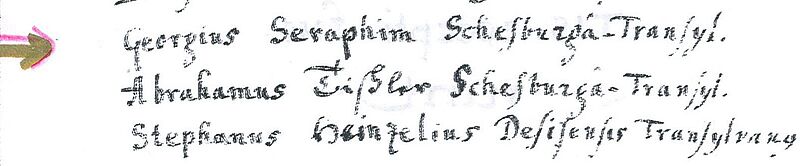 Georgius Seraphim Scheſburgâ-Tranſyl.
Abrahamus Tiſhler Scheſburgâ-Tranſyl.
Stephanus Heinzelius Deſiſenſis Tranſylvanꝰ